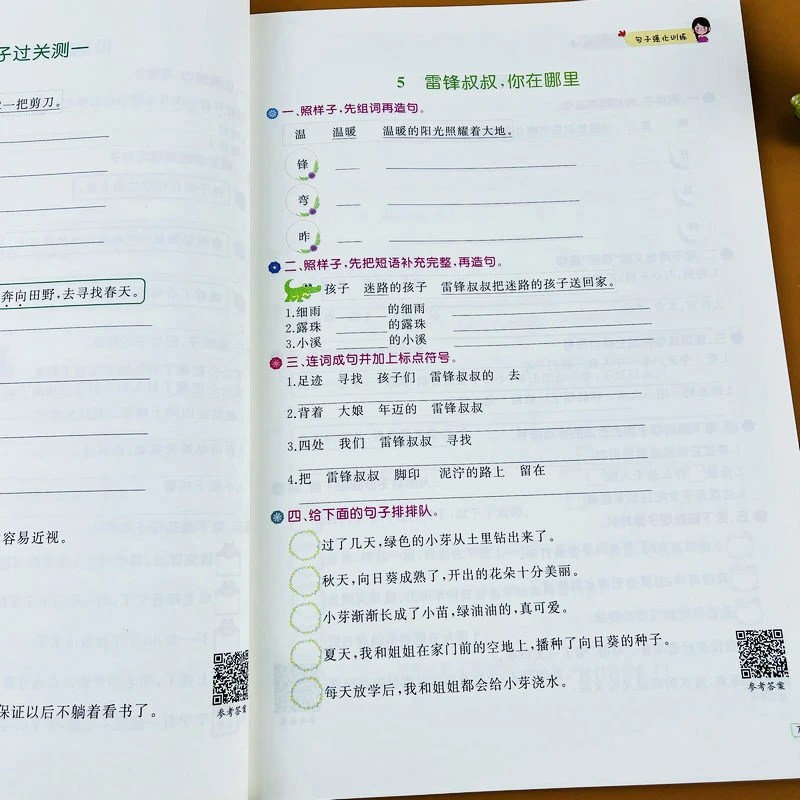 子过关测一
一把剪刀。
奔向田野,去寻找春天。
容易近视。
保证以后不躺着看书了。
参考答案
句子强化训练
5 雷锋叔叔,你在哪里
一、照样子,先组词再造句。
温 温暖 温暖的阳光照耀着大地。
锋
弯
昨
二、照样子,先把短语补充完整,再造句。
孩子 迷路的孩子 雷锋叔叔把迷路的孩子送回家。
1.细雨 的细雨
2.露珠 的露珠
3.小溪 的小溪
三、连词成句并加上标点符号。
1.足迹 寻找 孩子们 雷锋叔叔的 去
2.背着 大娘 年迈的 雷锋叔叔
3.四处 我们 雷锋叔叔 寻找
4.把 雷锋叔叔 脚印 泥泞的路上 留在
四、给下面的句子排排队。
过了几天,绿色的小芽从土里钻出来了。
秋天,向日葵成熟了,开出的花朵十分美丽。
小芽渐渐长成了小苗,绿油油的,真可爱。
夏天,我和姐姐在家门前的空地上,播种了向日葵的种子。
每天放学后,我和姐姐都会给小芽浇水。
参考答案